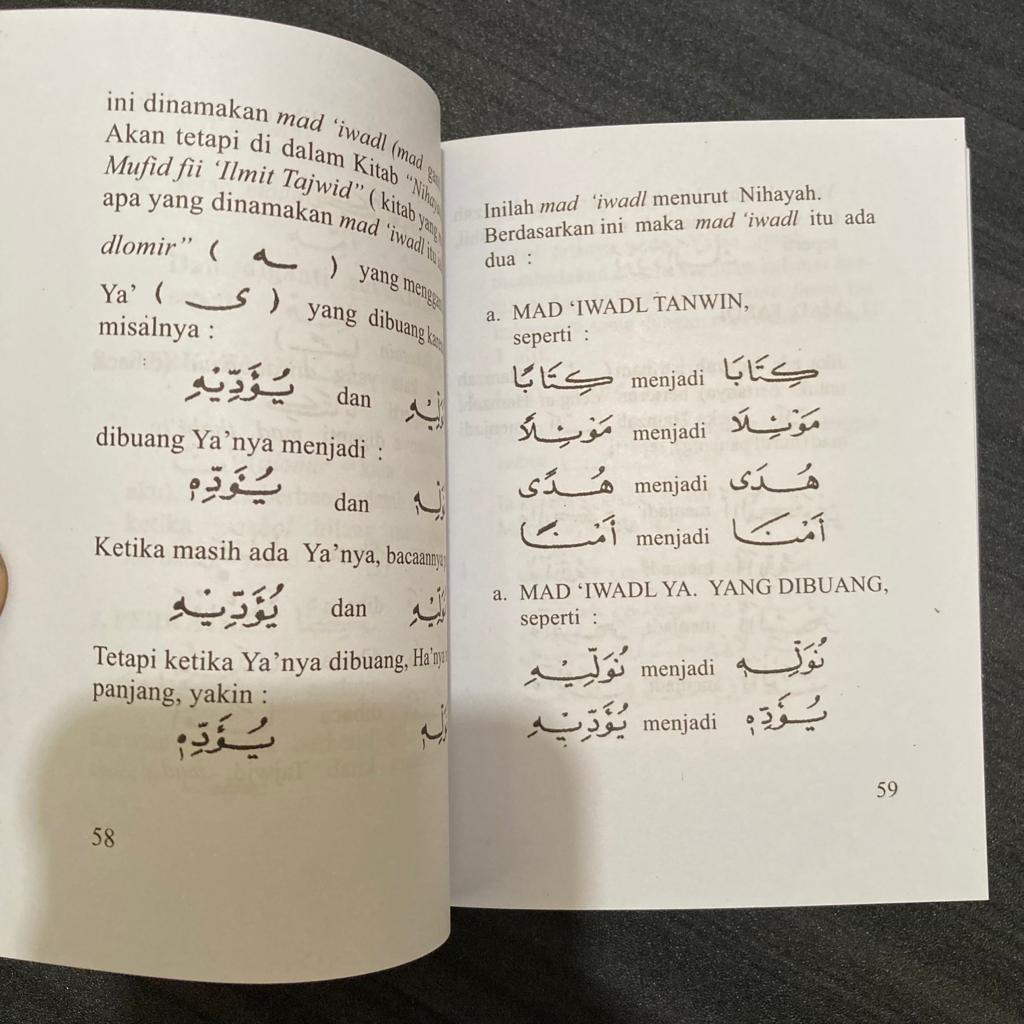 ini dinamakan mad ‘iwadl (mad
Akan tetapi di dalam Kitab “
Mufid fii ‘Ilmit Tajwid” ( kitab yang
apa yang dinamakan mad ‘iwadl itu
dlomir” ( ـه ) yang
Ya’ ( ى ) yang dibuang
misalnya :
يُؤَدِّيْهِ dan
dibuang Ya’nya menjadi :
يُؤَدِّهٖ dan
Ketika masih ada Ya’nya, bacaannya
يُؤَدِّيْهِ dan
Tetapi ketika Ya’nya dibuang, Ha’nya
panjang, yakin :
يُؤَدِّهٖ
58
Inilah mad ‘iwadl menurut Nihayah.
Berdasarkan ini maka mad ‘iwadl itu ada
dua :
a. MAD ‘IWADL TANWIN,
seperti :
كِتَابًا menjadi كِتَابَا
مَوْئِلًا menjadi مَوْئِلَا
هُدًى menjadi هُدَى
أَمْنًا menjadi أَمْنَا
a. MAD ‘IWADL YA. YANG DIBUANG,
seperti :
نُوَلِّيْهِ menjadi نُوَلِّهٖ
يُؤَدِّيْهِ menjadi يُؤَدِّهٖ
59